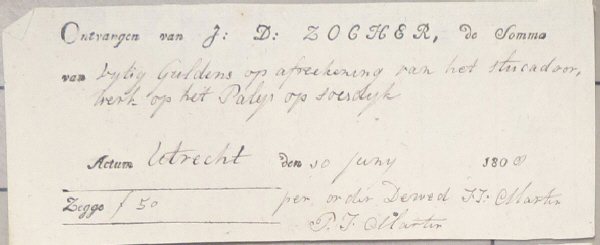 Ontvangen van J: D: ZOCHER, de Somma
van vytig Guldens op afreekening van het stucadoor,
werk op het Palys op soesdyk
Actum Utrecht den 10 Juny 1808
Zegge f 50 per order Dewed J J: Martin
P. J. Martin